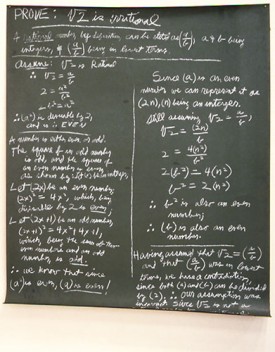 PROVE: √2 is irrational
A rational number by definition can be stated as (a/b) a & b being
integers, & (a/b) being in lowest terms.
Assume: √2 is Rational
∴ √2 = a/b
2 = a²/b²
∴ (a²) is divisible by 2,
and is EVEN
A number is either even or odd.
The square of an odd number
is odd, and the square of
an even number is even,
as shown by
Let (2x) be an even number
(2x)² = 4x², which, being
divisible by 2 is even;
Let (2x+1) be an odd number
(2x+1)² = 4x²+4x+1,
which, being the sum of two
even numbers and an odd
number is odd.
∴ we know that since
(a²) is even, (a) is even!
Since (a) is an even
number we can represent it as
(2n), (n) being an integer.
Still assuming √2 = a/b,
√2 = (2n)/b
2 = 4(n²)/b²
2(b²) = 4(n²)
b² = 2(n²)
∴ b² is also an even
number;
∴ (b) is also an even
number.
Having assumed that √2 = (a/b)
and that (a/b) was in lowest
terms, we have a contradiction
since both (a) and (b) can be divided
by (2). ∴ Our assumption was
incorrect. Since √2 is not